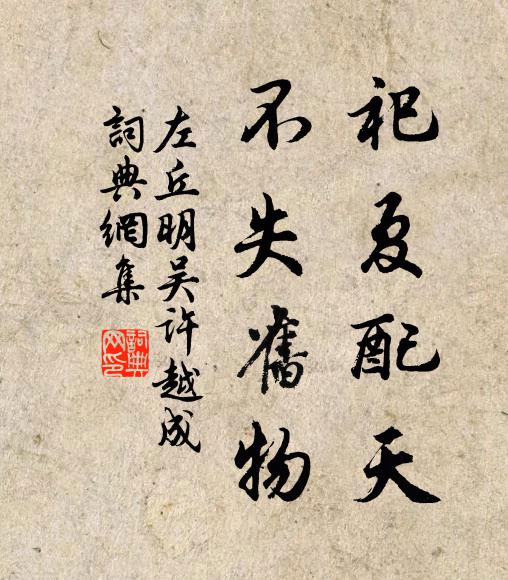 祀夏配天
不失舊物
左丘明吴许越成
詞典網集
詞典
网印